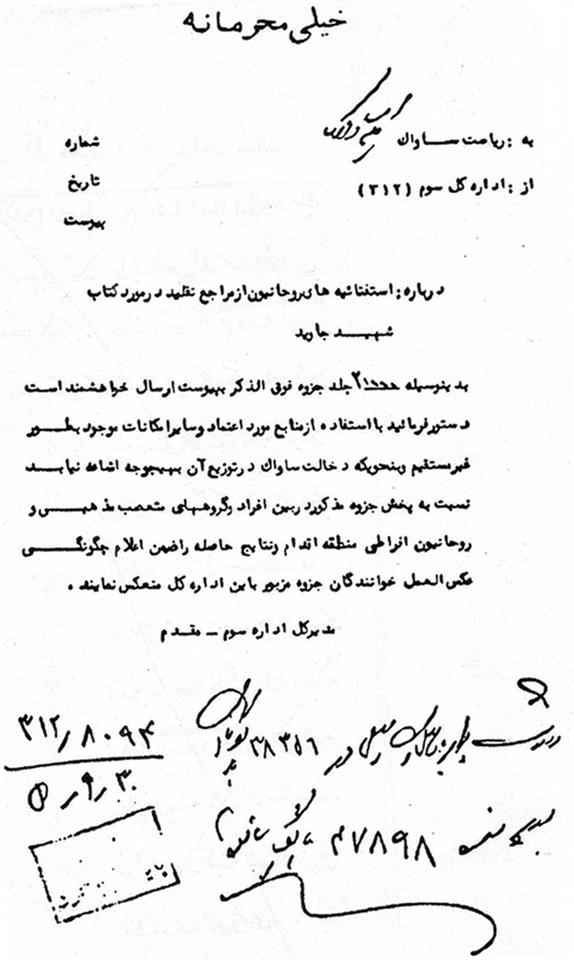 خیلی محرمانه
به : ریاست ساواک
شماره
از : اداره کل سوم (۳۱۲)
تاریخ
پیوست
درباره : استفتائیه های روحانیون از مراجع تقلید در مورد کتاب
شهید جاوید
بدینوسیله جلد جزوه فوق الذکر بپیوست ارسال خواهشمند است
دستور فرمائید با استفاده از منابع مورد اعتماد و سایر امکانات موجود بطور
غیر مستقیم و بنحویکه دخالت ساواک در توزیع آن بهیچوجه اشاعه نیابد
نسبت به پخش جزوه مذکور در بین افراد و گروههای متعصب مذهبی و
روحانیون افراطی منطقه اقدام و نتایج حاصله را ضمن اعلام چگونگی
عکس العمل خوانندگان جزوه مزبور باین اداره کل منعکس نمایند .
مدیر کل اداره سوم - مقدم
۳۱۲/۸۰۹۴
۲۸۳۵۶
۴۷۸۹۸